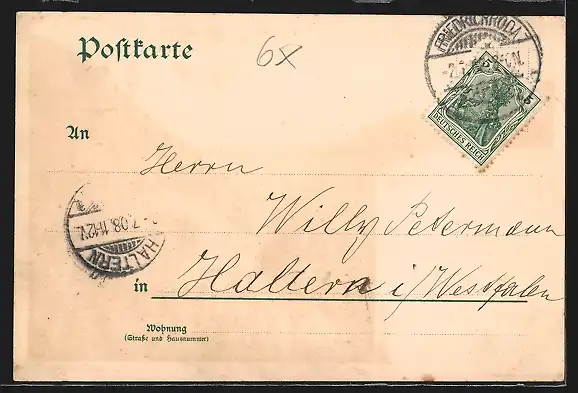 Postkarte
68
FRIEDRICHRODA
5 5
DEUTSCHES REICH
An
Herrn
Willy Petermann
7.08.11-12V.
HALTERN
in Haltern i/Westfalen
Wohnung
(Straße und Hausnummer)